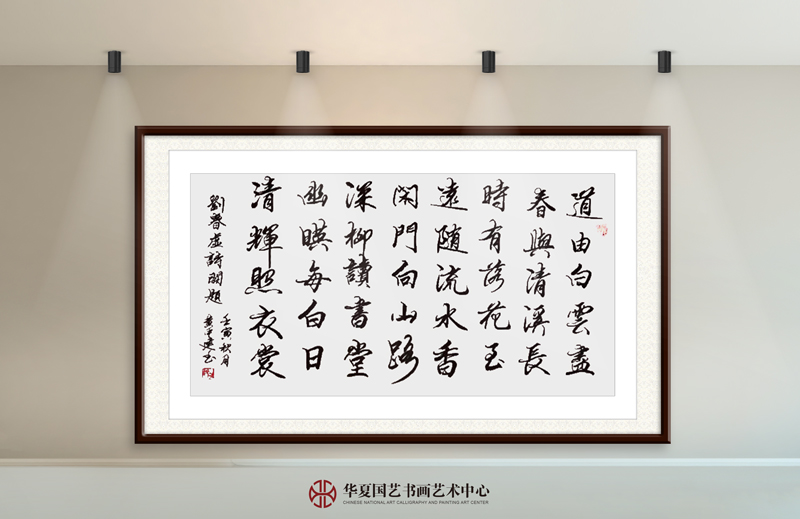 道由白雲盡
春與清溪長
時有落花至
遠随流水香
閑門向山路
深柳讀書堂
幽暎每白日
清輝照衣裳
劉昚虛詩闕題
壬寅秋月
华夏国艺书画艺术中心
CHINESE NATIONAL ART CALLIGRAPHY AND PAINTING ART CENTER